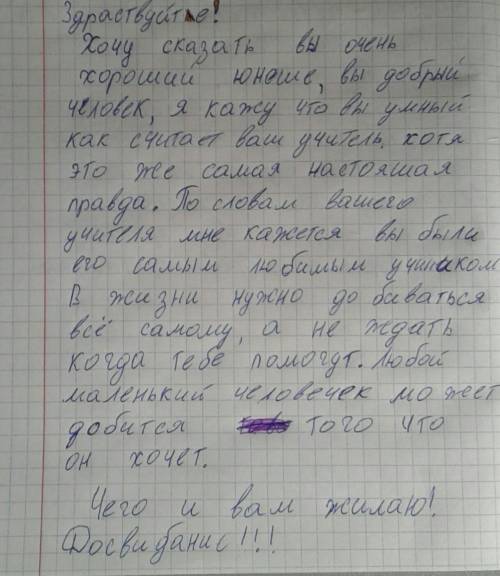 Здраствуйтье!
Хочу сказать вы очень
хороший юноше, вы добрый
человек, я кажу что вы умный
как считает ваш учитель, хотя
это же самая настояшая
правда. По словам вашего
учителя мне кажется вы были
его самым любимым учиником
В жизни нужно до биваться
всё самому, а не ждать
когда тебе помогут. Любой
маленький человечек может
добится того что
он хочет.
Чего и вам жилаю!
Досвибание!!!